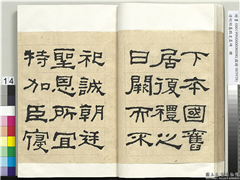 下本國舊
居復禮之
日闕而不
祀誠朝廷
聖恩所宜
特加臣寑
14